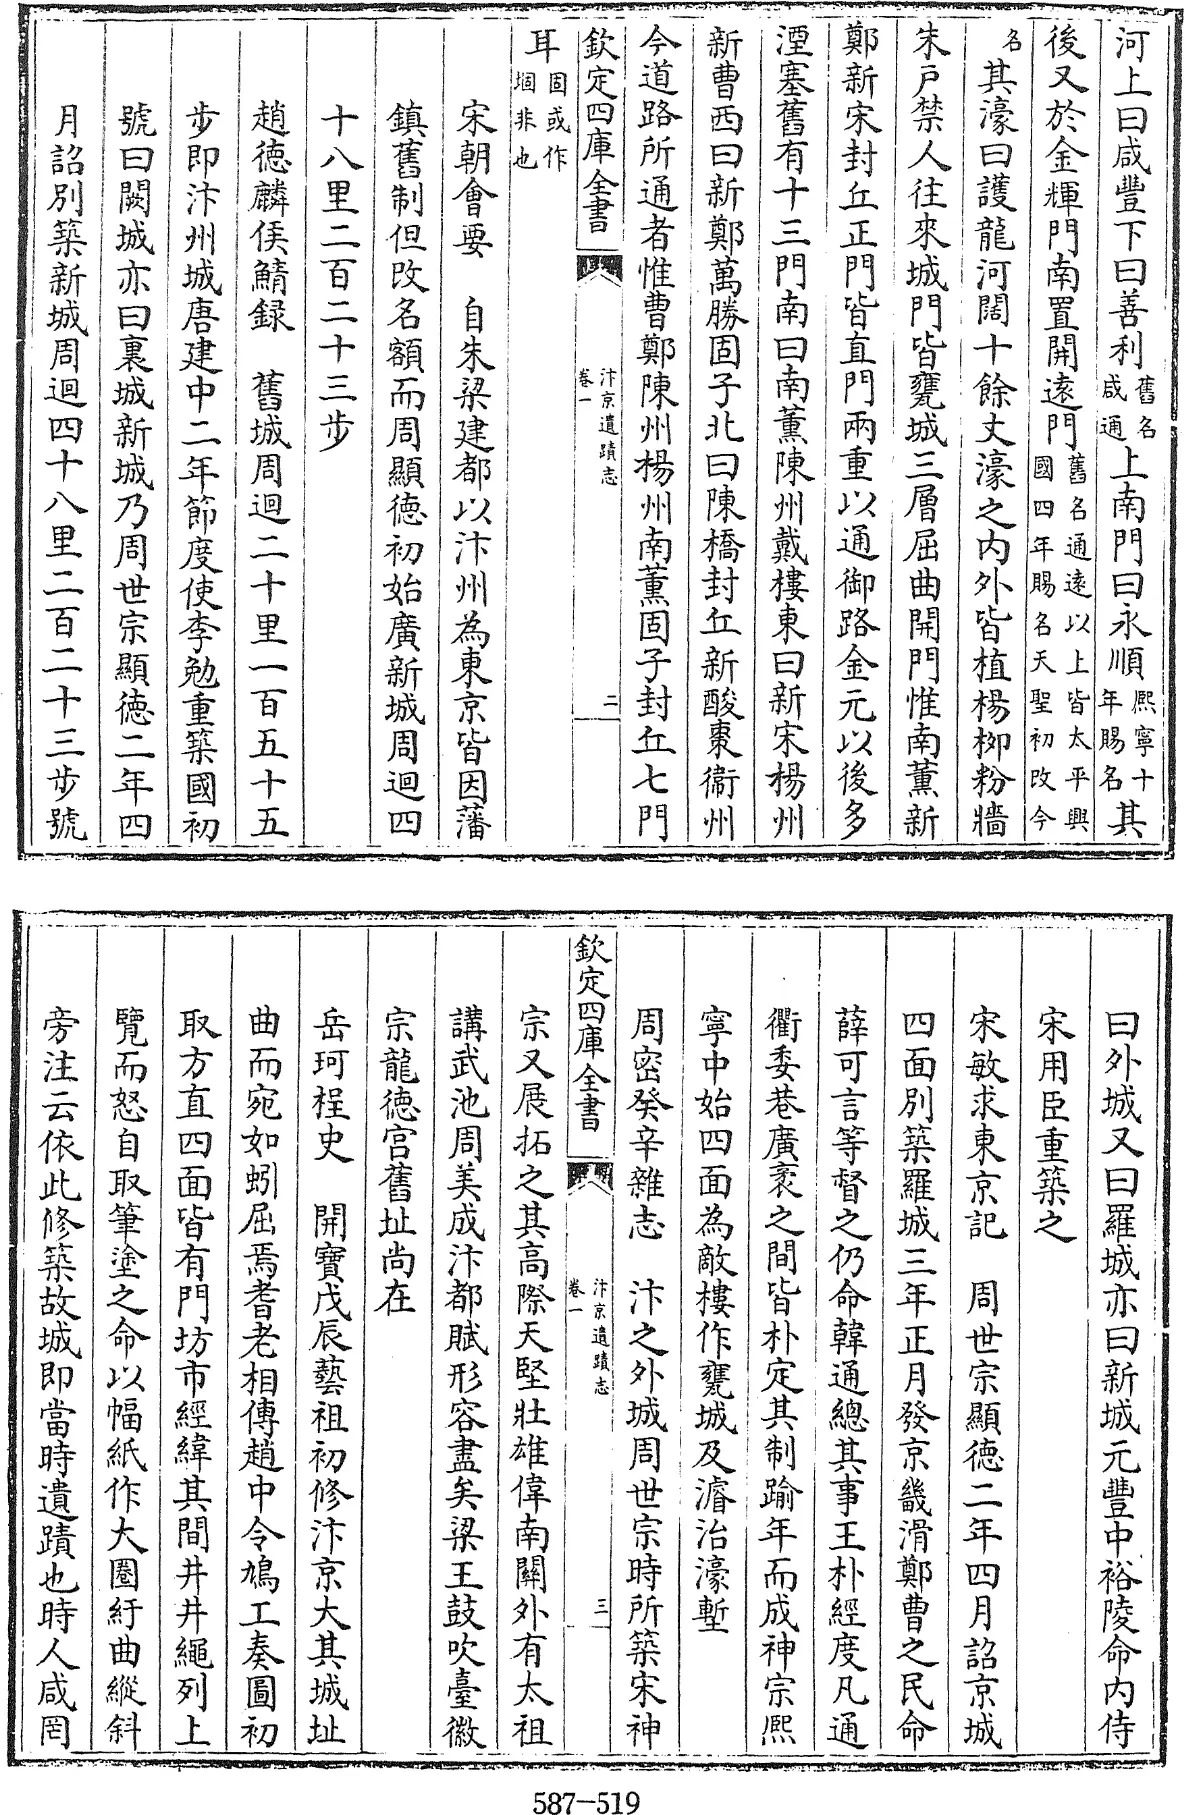 河上曰咸豐下曰善利舊名咸通上南門曰永順熙寧十年賜名其
後又於金輝門南置開遠門舊名通遠以上皆太平興國四年賜名天聖初改今
名其濠曰護龍河闊十餘丈濠之内外皆植楊栁粉牆
朱戸禁人往來城門皆甕城三層屈曲開門惟南薫新
鄭新宋封丘正門皆直門兩重以通御路金元以後多
湮塞舊有十三門南曰南薫陳州戴樓東曰新宋楊州
新曹西曰新鄭萬勝固子北曰陳橋封丘新酸棗衞州
今道路所通者惟曹鄭陳州楊州南薫固子封丘七門
欽定四庫全書 汴京遺蹟志 卷一 二
耳固或作堌非也
宋朝會要 自朱梁建都以汴州為東京皆因藩
鎮舊制但改名額而周顯徳初始廣新城周迴四
十八里二百二十三步
趙徳麟侯鯖録 舊城周迴二十里一百五十五
步即汴州城唐建中二年節度使李勉重築國初
號曰闕城亦曰裏城新城乃周世宗顯徳二年四
月詔别築新城周迴四十八里二百二十三步號
曰外城又曰羅城亦曰新城元豐中裕陵命内侍
宋用臣重築之
宋敏求東京記 周世宗顯徳二年四月詔京城
四面别築羅城三年正月發京畿滑鄭曹之民命
薛可言等督之仍命韓通總其事王朴經度凡通
衢委巷廣袤之間皆朴定其制踰年而成神宗熙
寧中始四面為敵樓作甕城及濬治濠塹
周密癸辛雜志 汴之外城周世宗時所築宋神
欽定四庫全書 汴京遺蹟志 卷一 三
宗又展拓之其高際天堅壯雄偉南關外有太祖
講武池周美成汴都賦形容盡矣梁王鼓吹臺徽
宗龍徳宫舊址尚在
岳珂桯史 開寶戊辰藝祖初修汴京大其城址
曲而宛如蚓屈焉耆老相傳趙中令鳩工奏圖初
取方直四面皆有門坊市經緯其間井井繩列上
覽而怒自取筆塗之命以幅紙作大圏紆曲縱斜
旁注云依此修築故城即當時遺蹟也時人咸罔
587-519